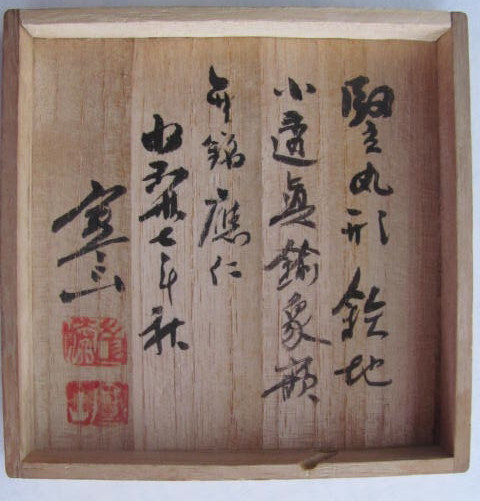 竪丸形 鉄地
小透真鍮象嵌
無銘 應仁
昭和卅七年秋
寒山